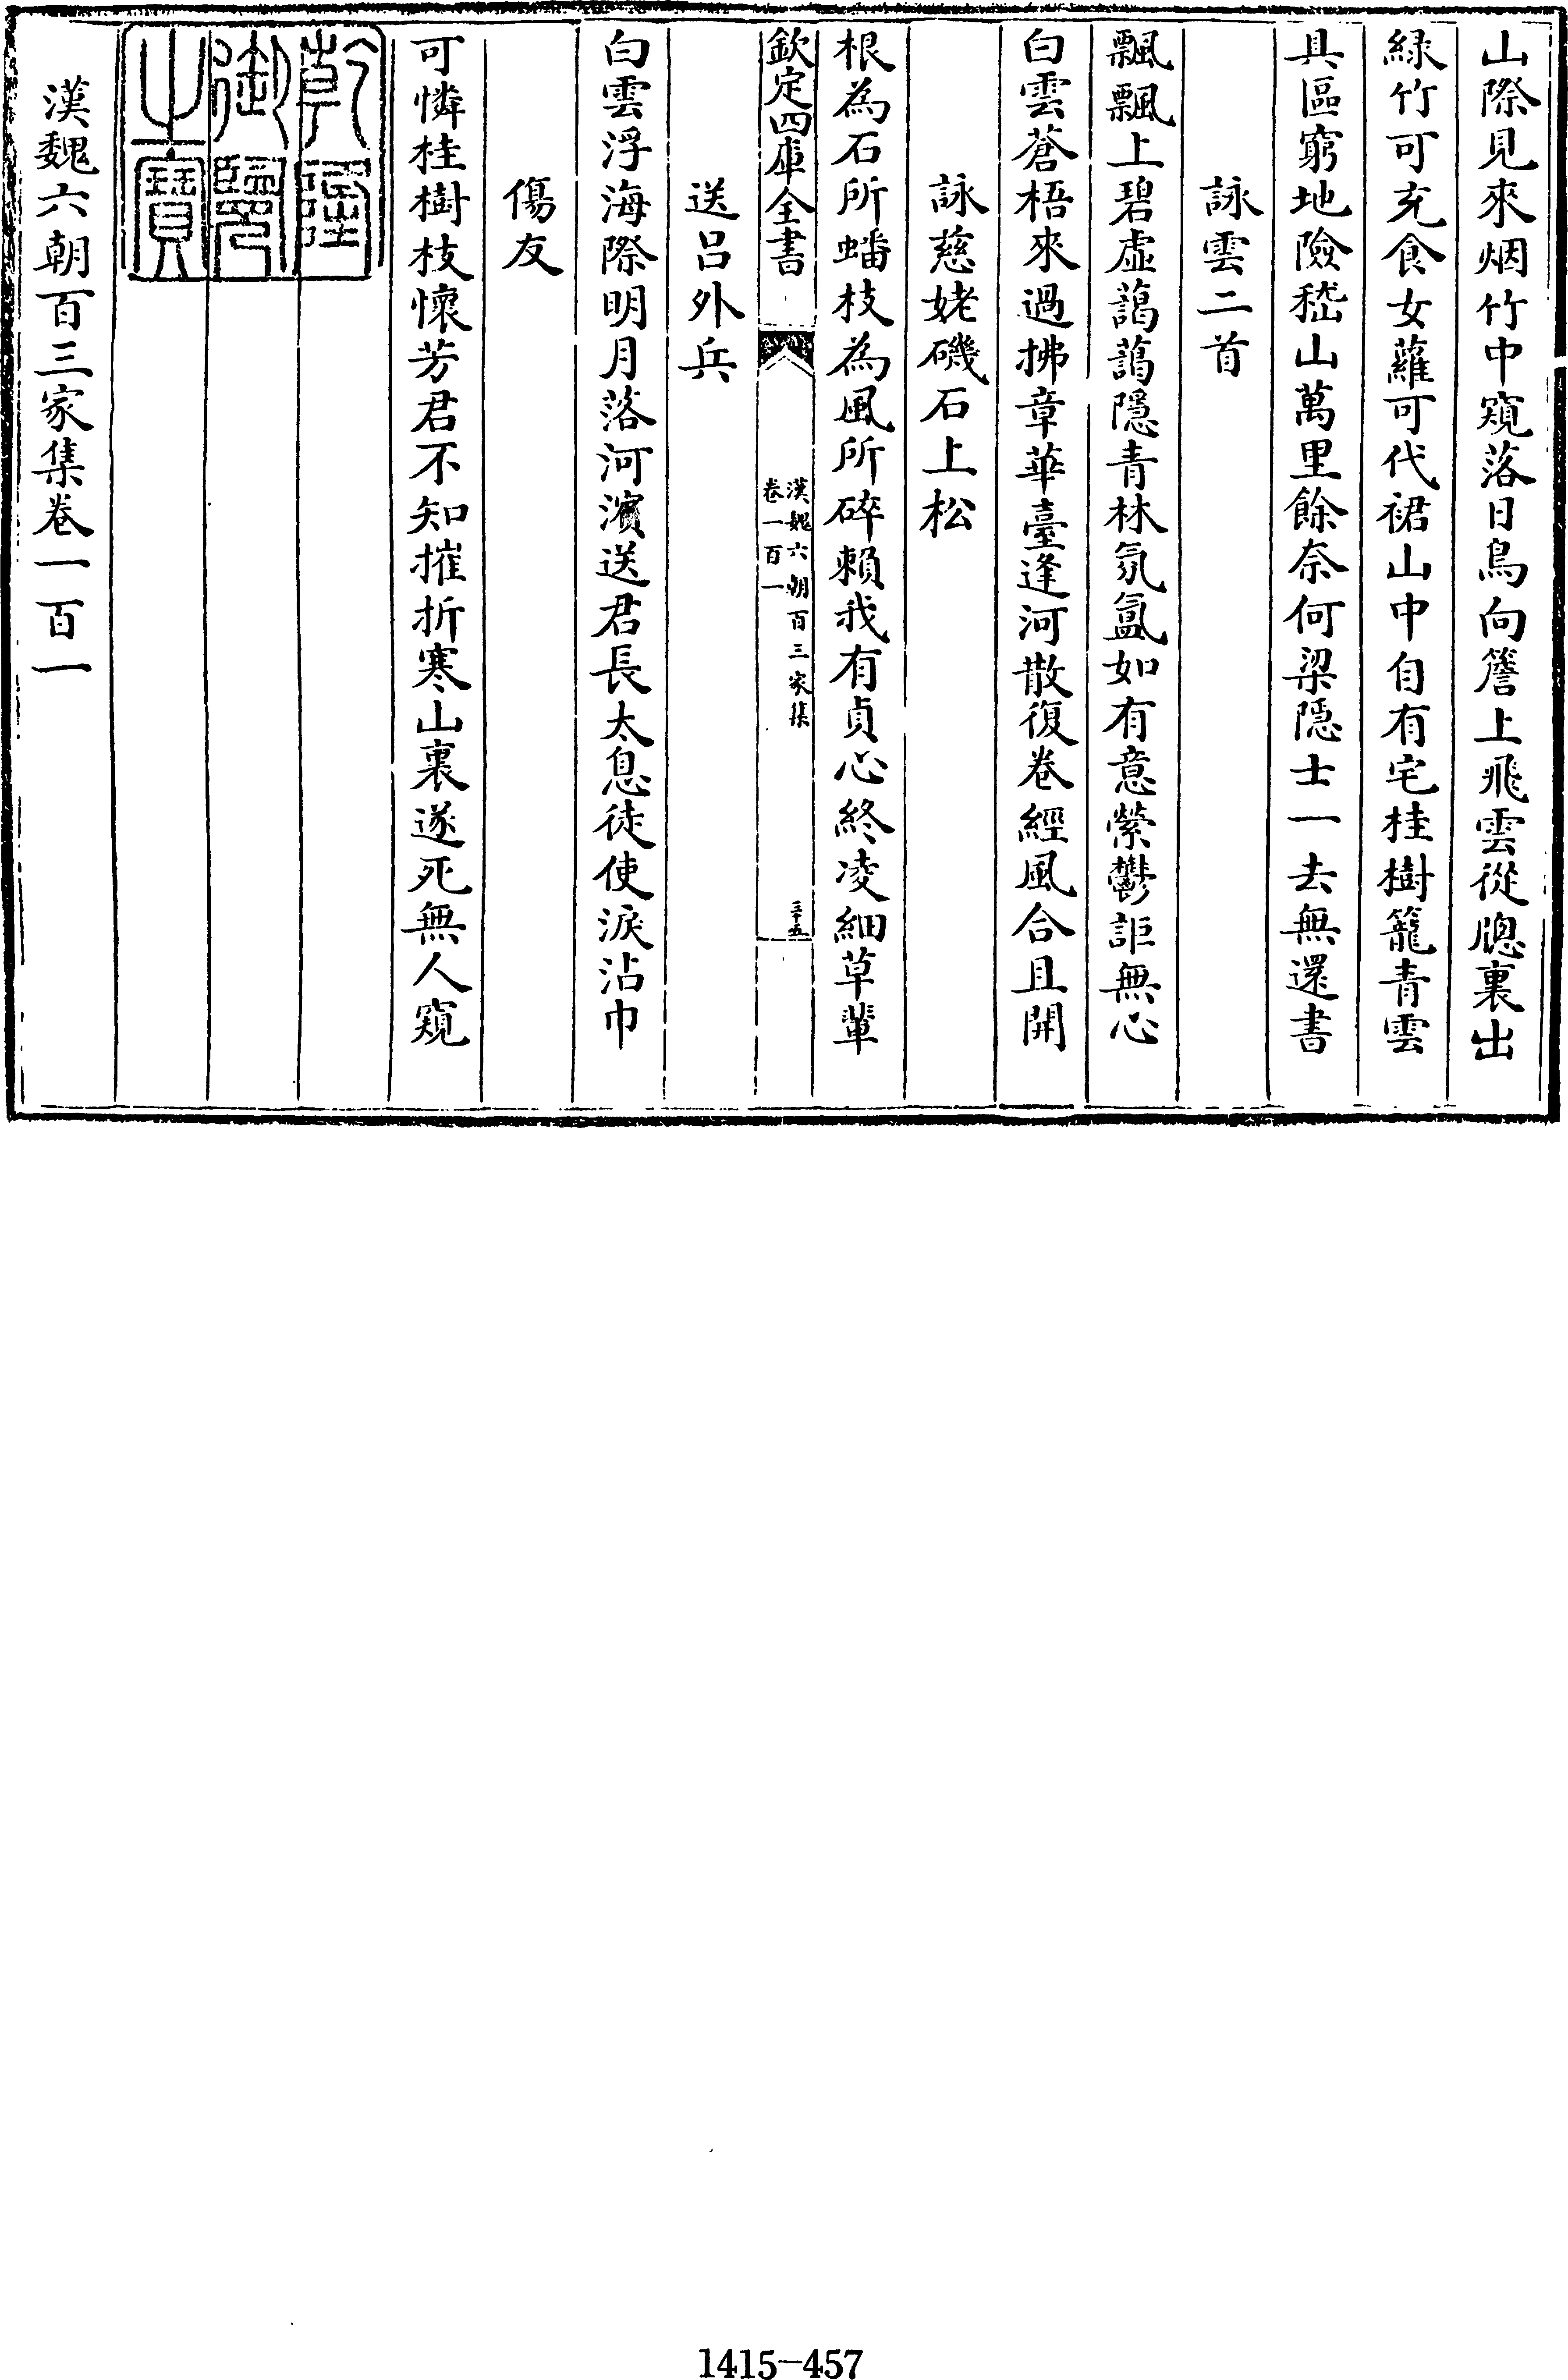 山際見來烟竹中窺落日鳥向簷上飛雲從牕裏出
緑竹可充食女蘿可代裙山中自有宅桂樹籠青雲
具區窮地險嵇山萬里餘奈何梁隱士一去無還書
詠雲二首
飄飄上碧虛藹藹隱青林氛氳如有意縈鬱詎無心
白雲蒼梧來過拂章華臺逢河散復卷經風合且開
詠慈姥磯石上松
根為石所蟠枝為風所碎賴我有貞心終凌細草輩
欽定四庫全書
漢魏六朝百三家集
卷一百一
三十五
送呂外兵
白雲浮海際明月落河濱送君長太息徒使淚沾巾
傷友
可憐桂樹枝懷芳君不知摧折寒山裏遂死無人窺
乾隆
御覽
之寶
漢魏六朝百三家集卷一百一
1415-457